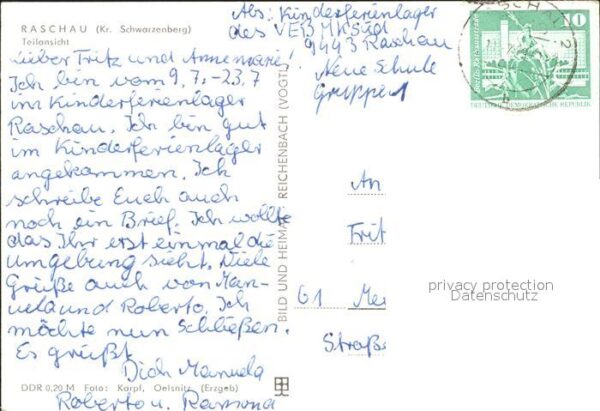 RASCHAU (Kr. Schwarzenberg)
Teilansicht
Lieber Fritz und Annemarie!
Ich bin vom 9.7.-23.7
im Kinderferienlager
Raschau. Ich bin gut
im Kinderferienlager
angekommen. Ich
schreibe Euch auch
noch ein Brief. Ich wollte
das Ihr erst einmal die
Umgebung sieht. Viele
Grüße auch von Man-
uela und Roberto. Ich
möchte nun Schließen.
Es grüßt
Dich Manuela
Roberto u. Ramona
DDR 0,20 M Foto: Karpf, Oelsnitz (Erzgeb)
BILD UND HEIMAT REICHENBACH (VOGTL
Abs: Kinderferienlager
des VEB MK Süd
9443 Raschau
Neue Schule
Gruppe 1
10
DEUTSCHE DEMOKRATISCHE REPUBLIK
An
Frit
61 Mei
Straß
privacy protection
Datenschutz